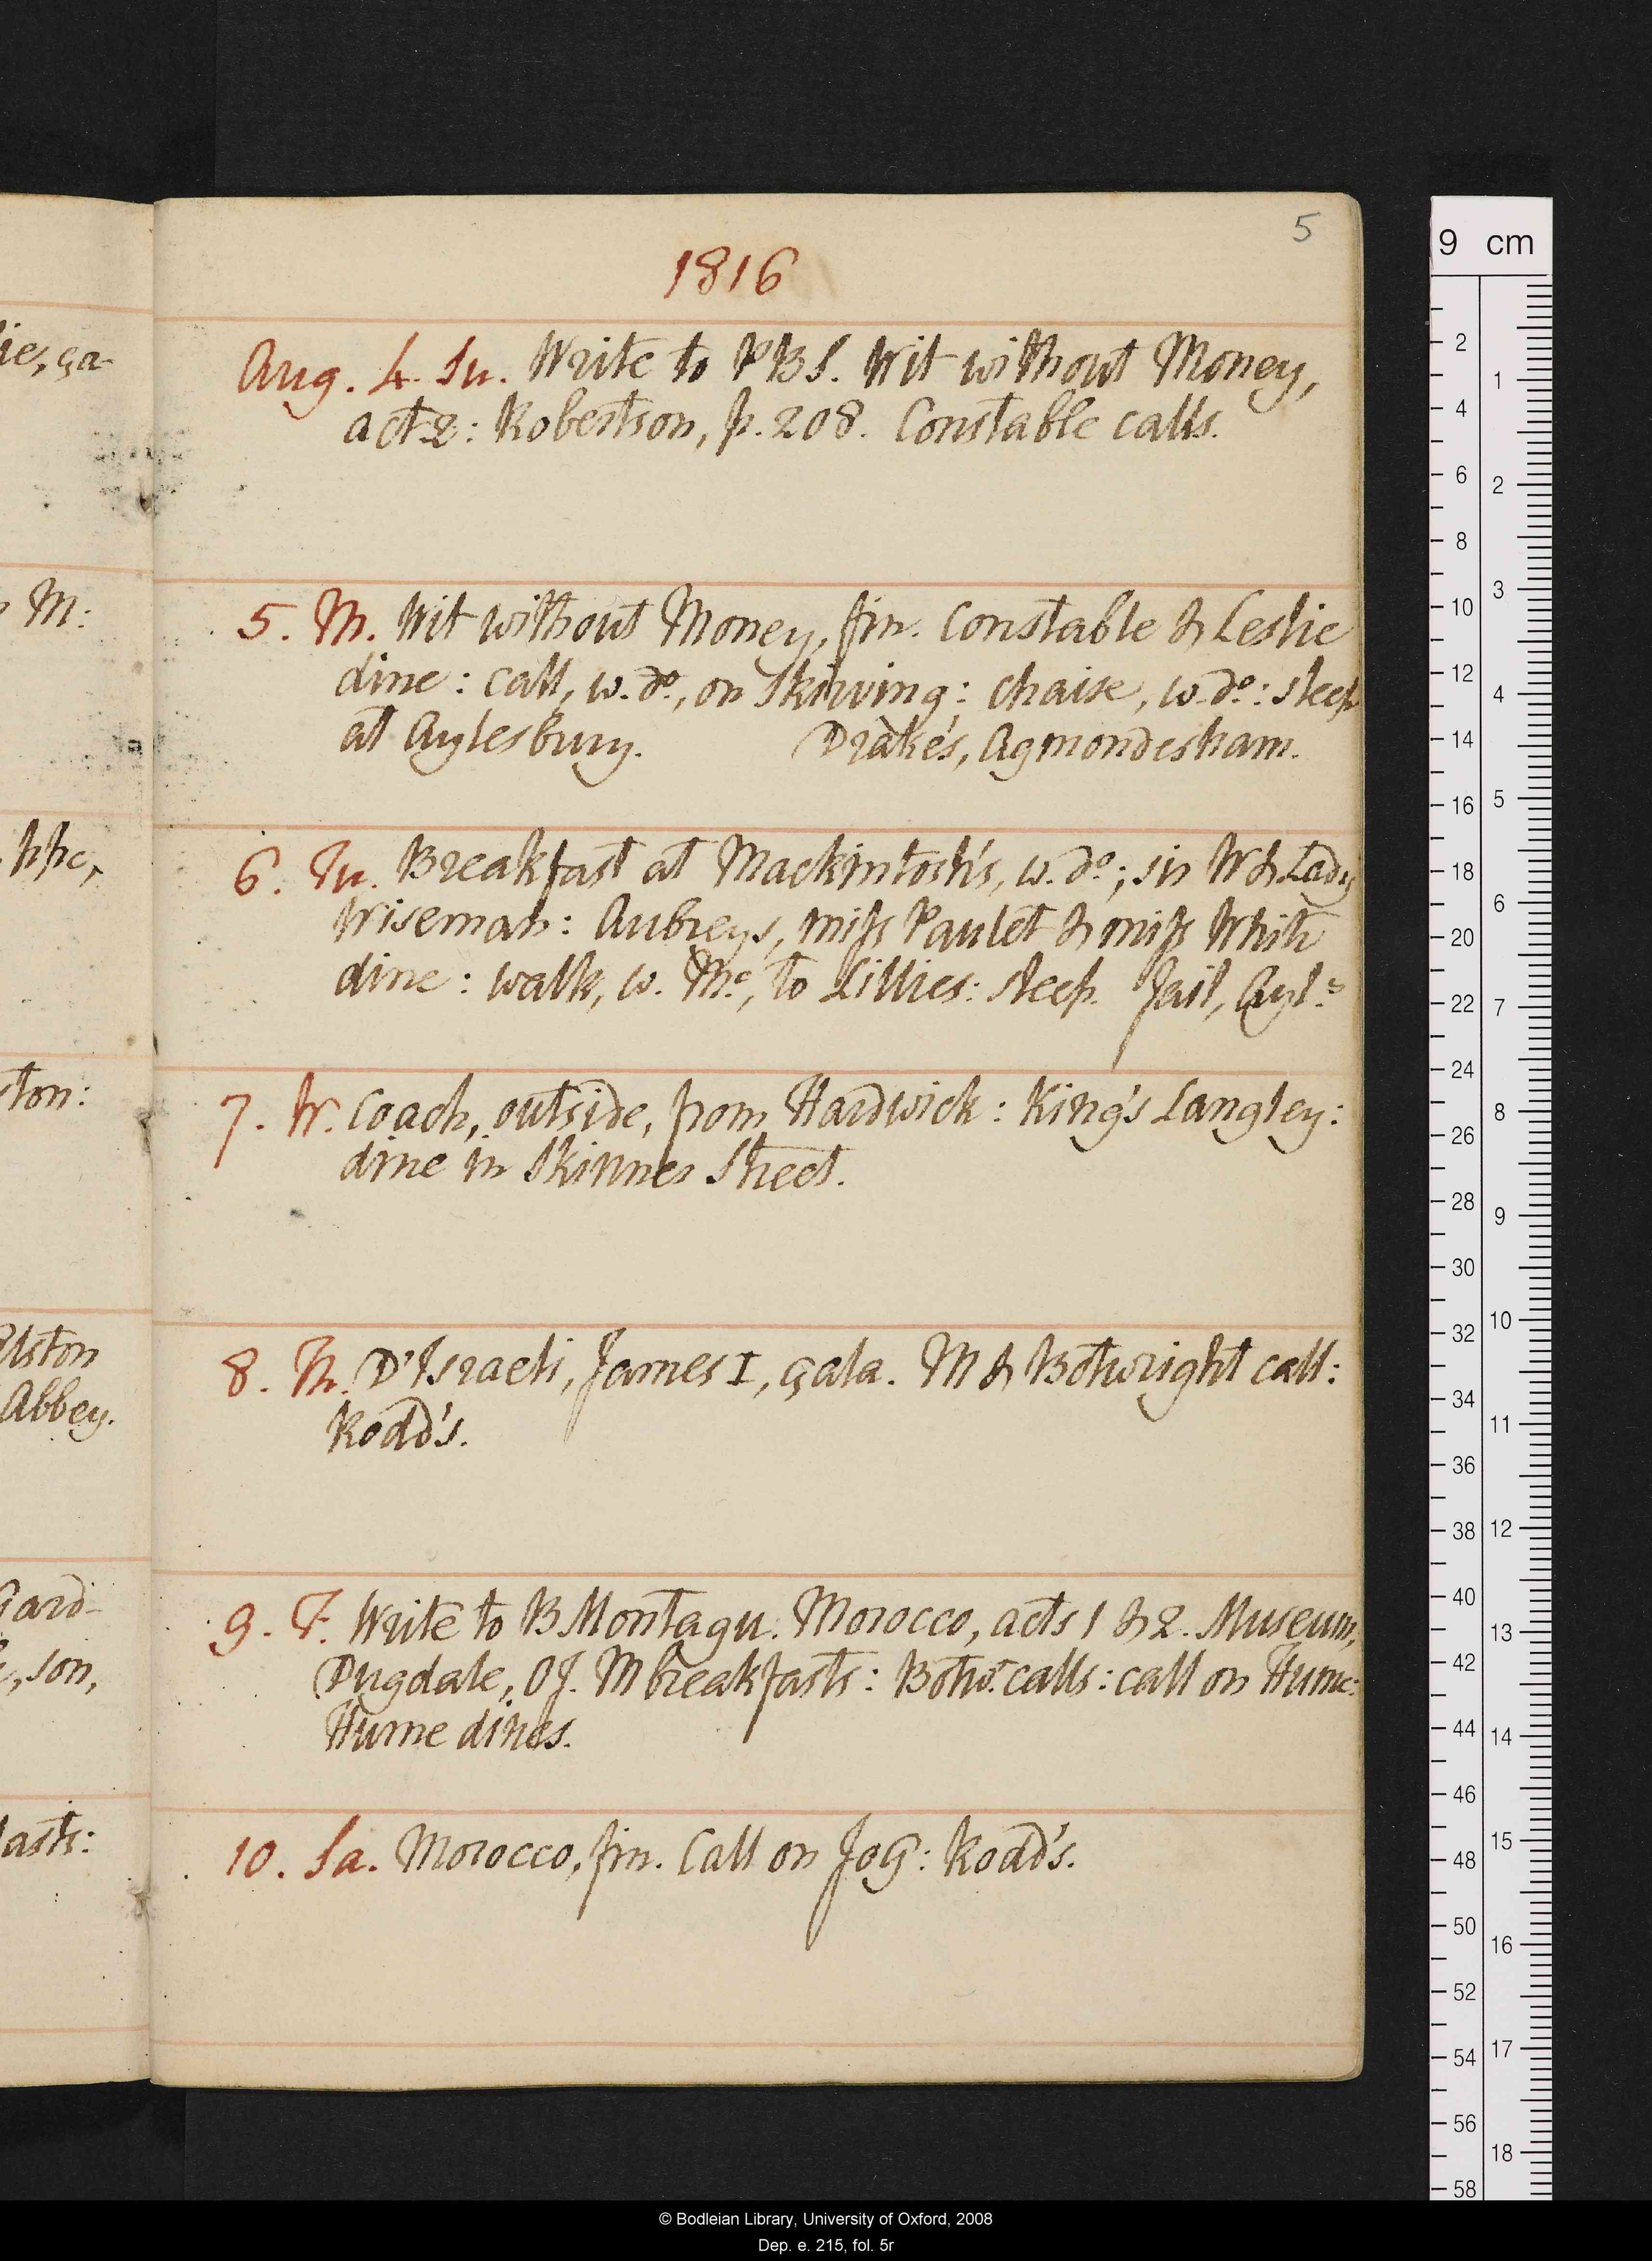 5
1816
Aug. 4. Su. Write to PBS. Wit without Money,
act 2: Robertson, p. 208. Constable calls.
5. M. Wit without Money, fin. Constable & Leslie
dine: call, w. do., on Skirving: chaise, w. do.: sleep
at Aylesbury. Drake's, Agmondesham.
6. Tu. Breakfast at Mackintosh's, w. do.; sir W & Lady
Wiseman: Aubreys, miss Paulet & miss White
dine: walk, w. Mc., to Lillies: sleep. Jail, Ayl.
7. W. Coach, outside, from Hardwick: King's Langley:
dine in Skinner Street.
8. Th. D'Israeli, James I, çala. M & Botwright call:
Rodd's.
9. F. Write to B Montagu. Morocco, acts 1 & 2. Museum,
Dugdale, OJ. M breakfasts: Botwt. calls: call on Hume:
Hume dines.
10. Sa. Morocco, fin. Call on JoG: Rodd's.
ie, ça-
M:
ppe,
ston:
lston
Abbey.
Gard-
, son,
asts:
9 cm
2
4
6
8
10
12
14
16
18
20
22
24
26
28
30
32
34
36
38
40
42
44
46
48
50
52
54
56
58
1
2
3
4
5
6
7
8
9
10
11
12
13
14
15
16
17
18
© Bodleian Library, University of Oxford, 2008
Dep. e. 215, fol. 5r